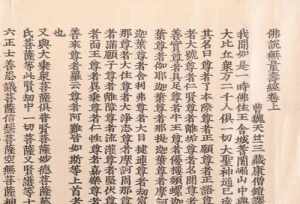 佛說無量壽經卷上
曹魏天竺三藏康僧鎧譯
我聞如是一時佛住王舍城耆闍崛山中與
大比丘衆萬二千人俱一切大聖神通已達
其名曰尊者了本際尊者正願尊者正語尊
者大號尊者仁賢尊者離垢尊者名聞尊者
善實尊者具足尊者牛王尊者優樓頻蠡
迦葉尊者伽耶迦葉尊者那提迦葉尊者摩訶
迦葉尊者舍利弗尊者大目揵連尊者劫賓
那尊者大住尊者大淨志尊者摩訶周那尊
者滿願子尊者離障尊者流灌尊者堅伏尊
者面王尊者異乘尊者仁性尊者嘉樂尊者
善來尊者羅云尊者阿難皆如斯等上首者
也
又與大乘衆菩薩俱普賢菩薩妙德菩薩慈
氏菩薩等此賢劫中一切菩薩又賢護等十
六正士善思議菩薩信慧菩薩空無菩薩